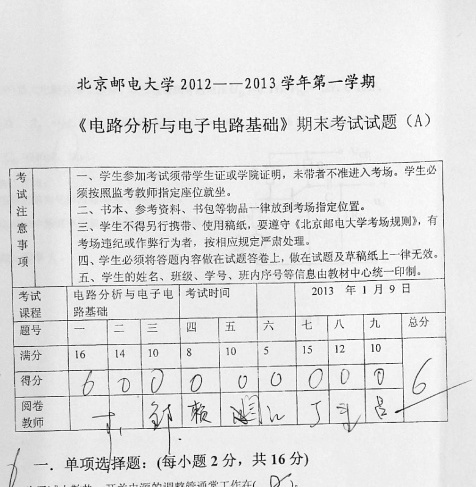 北京邮电大学 2012——2013 学年第一学期
《电路分析与电子电路基础》期末考试试题（A）
考试注意事项
一、学生参加考试须带学生证或学院证明，未带者不准进入考场。学生必
须按照监考教师指定座位就坐。
二、书本、参考资料、书包等物品一律放到考场指定位置。
三、学生不得另行携带、使用稿纸，要遵守《北京邮电大学考场规则》，有
考场违纪或作弊行为者，按相应规定严肃处理。
四、学生必须将答题内容做在试题答卷上，做在试题及草稿纸上一律无效。
五、学生的姓名、班级、学号、班内序号等信息由教材中心统一印制。
考试课程 电路分析与电子电路基础 考试时间 2013 年 1 月 9 日
题号 一 二 三 四 五 六 七 八 九 总分
满分 16 14 10 8 10 5 15 12 10
得分 6 0 0 0 0 0 0 0 0 6
阅卷教师
一．单项选择题：(每小题 2 分，共 16 分)